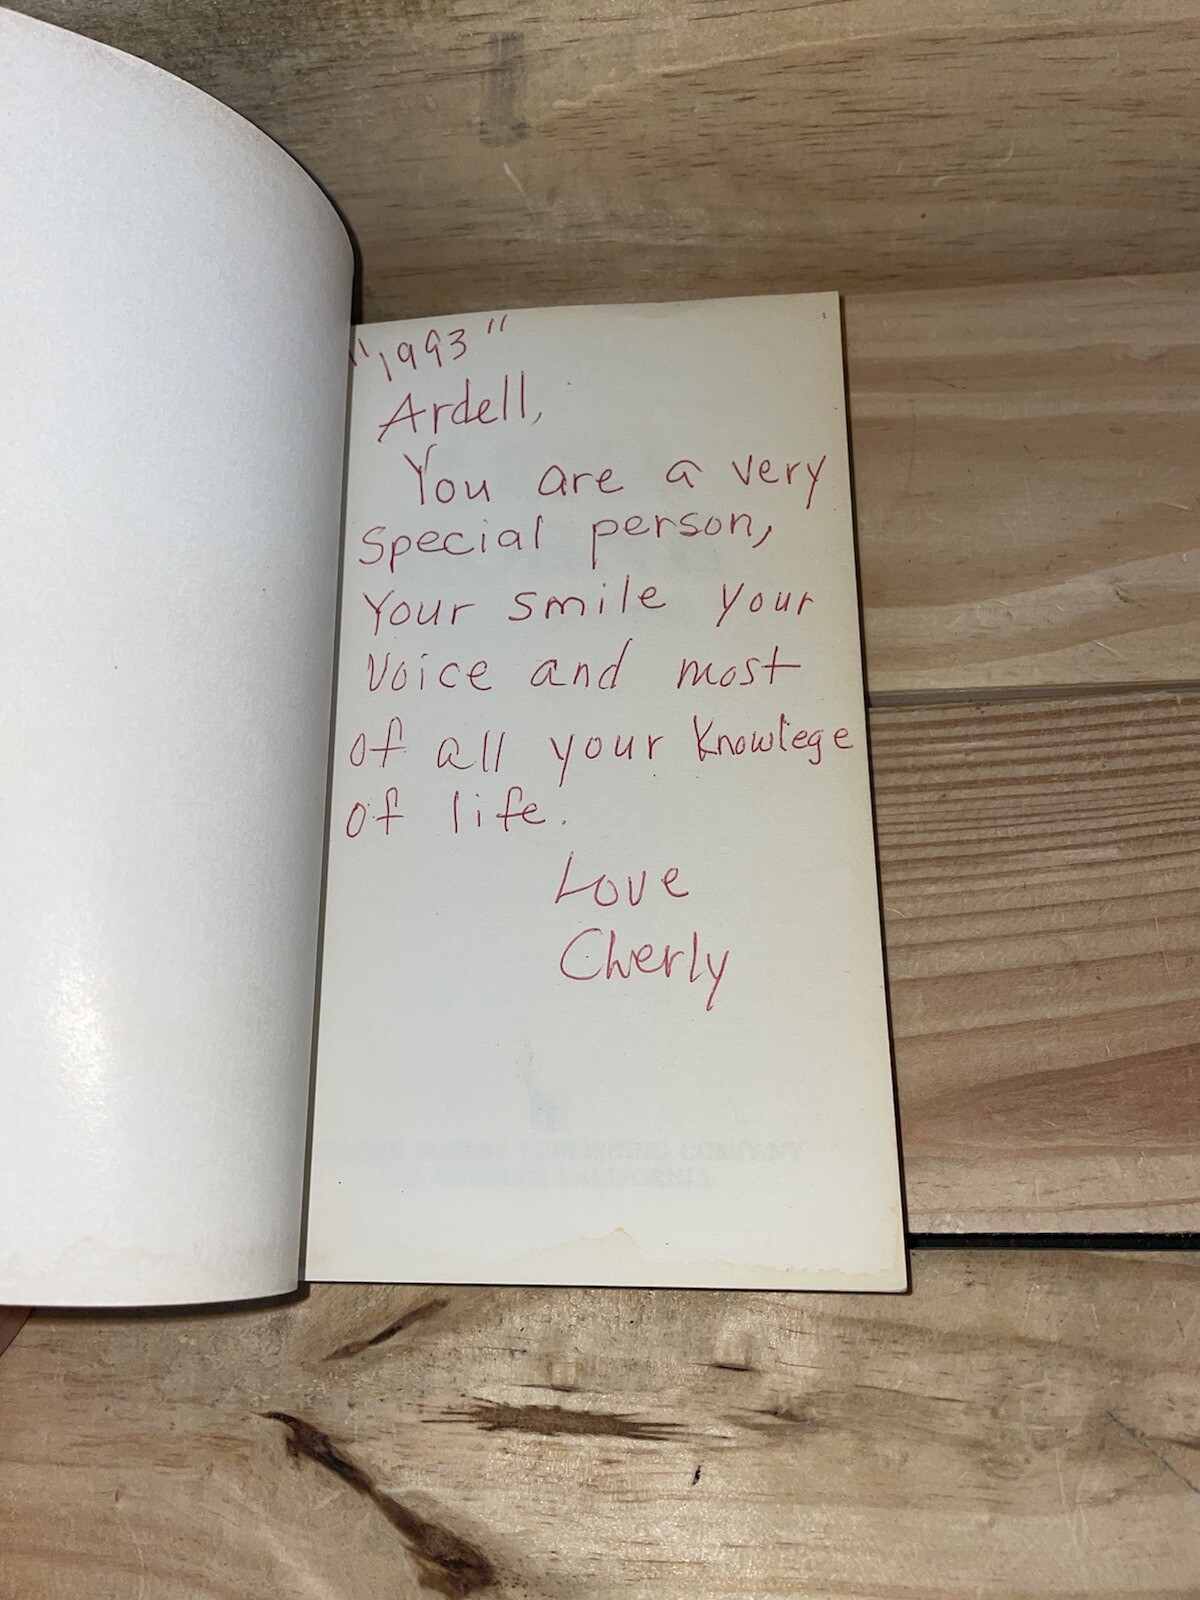 "1993"
Ardell,
You are a very
special person,
Your smile your
Voice and most
of all your Knowlege
of life.
Love
Cherly
PUBLISHING COMPANY
CALIFORNIA